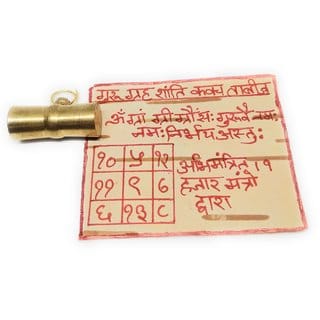 गुरु ग्रह शांति कवच ताबीज
ॐ ग्रां ग्रीं ग्रौं सः गुरुवै
नमः अस्तुः
१० ५ १२
११ ९ ७
६ १३ ८
अभिमंत्रित
हजार मंत्रो
द्वारा